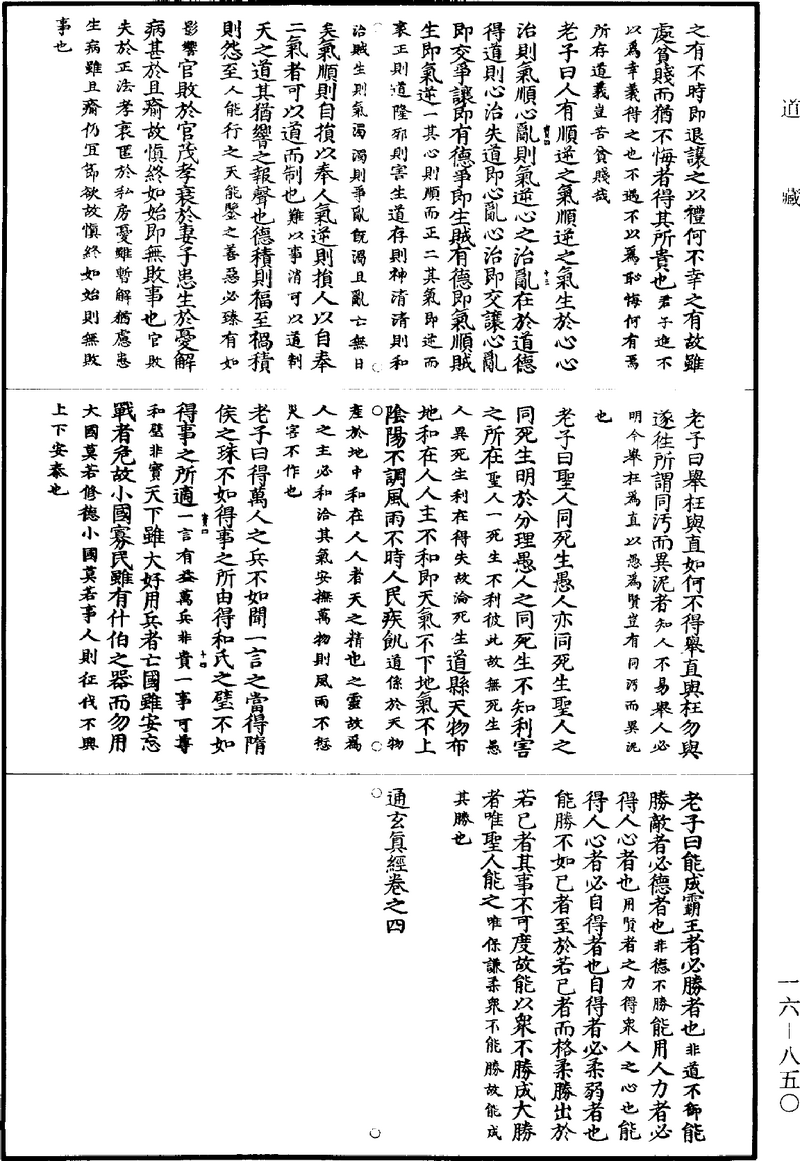 道藏
之有不時即退讓之以禮何不幸之有故雖
處貧賤而猶不悔者得其所貴也君子進不
以為幸義得之也不遇不以為恥悔何有焉
所存道義豈苦貧賤哉
老子曰人有順逆之氣順逆之氣生於心心
治則氣順心亂則氣逆心之治亂在於道德
得道則心治失道即心亂心治即交讓心亂
即交爭讓即有德爭即生賊有德即氣順賊
生即氣逆一其心則順而正二其氣即逆而
衰正則道隆邪則害生道存則神清清則和
治賊生則氣濁濁則爭亂既濁且亂亡無日
矣氣順則自損以奉人氣逆則損人以自奉
二氣者可以道而制也難以事消可以道制
天之道其猶響之報聲也德積則福至禍積
則怨至人能行之天能鑒之善惡必臻有如
影響官敗於官茂孝衰於妻子患生於憂解
病甚於且瘉故慎終如始即無敗事也官敗
失於正法孝衰匿於私房憂雖暫解猶慮患
生病雖且瘉仍宜節欲故慎終如始則無敗
事也
老子曰舉枉與直如何不得舉直與枉勿與
遂往所謂同污而異泥者知人不易舉人必
明今舉枉為直以愚為賢豈有同污而異泥
也
老子曰聖人同死生愚人亦同死生聖人之
同死生明於分理愚人之同死生不知利害
之所在聖人一死生不利彼此故無死生愚
人異死生利在得失故淪死生道縣天物布
地和在人人主不和即天氣不下地氣不上
陰陽不調風雨不時人民疾飢道係於天物
產於地中和在人人者天之精也之靈故為
人之主必和洽其氣安撫萬物則風雨不愆
災害不作也
老子曰得萬人之兵不如聞一言之當得隋
侯之珠不如得事之所由得和氏之璧不如
得事之所適一言有益萬兵非貴一事可尊
和璧非寶天下雖大好用兵者亡國雖安忘
戰者危故小國寡民雖有什伯之器而勿用
大國莫若修德小國莫若事人則征伐不興
上下安泰也
老子曰能成霸王者必勝者也非道不御能
勝敵者必德者也非德不勝能用人力者必
得人心者也用賢者之力得衆人之心也能
得人心者必自得者也自得者必柔弱者也
能勝不如己者至於若己者而格柔勝出於
若己者其事不可度故能以衆不勝成大勝
者唯聖人能之唯保謙柔衆不能勝故能成
其勝也
通玄真經卷之四
一六－八五〇